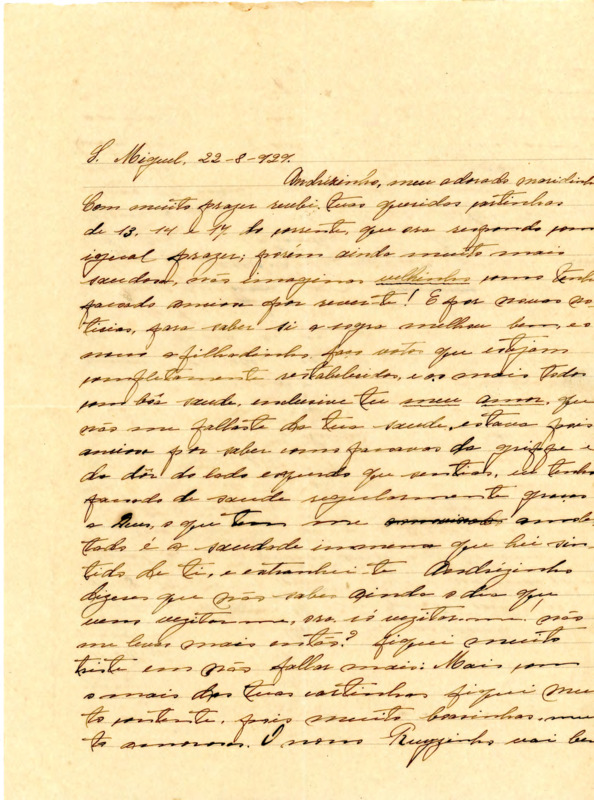 S. Miguel, 22-8-929.
Andrezinho, meu adorado maridinho
Com muito prazer recebi, tuas queridas cartinhas
de 13, 14 e 17 do corrente, que ora respondo com
igual prazer; porém ainda muito mais
saudosa, não imaginas velhinho como tenho
passado anciosa por rever-te! E por novas no-
ticias, para saber si a sogra melhorou bem, e o
nosso afilhadinho, faço votos que estejam
completamente restabelecidos, e os mais todos
com bôa saude, inclusive tu meu amor, que
não me fallaste da tua saude, estava pois
anciosa por saber como passavas da grippe e
da dôr do lado esquerdo que sentias, eu tenho
passado de saude regularmente graças
a Deus, o que tem me amole-
tado é a saudade immensa que hei sen-
tido de ti, e extranhei-te Andrezinho
dizeres que não sabes ainda o dia que
vem vezitar-me, ora, só vezitar-me. não
me levas mais então? fiquei muito
triste em não fallar mais: Mais com
o mais das tuas cartinhas fiquei mui-
to contente, pois muito boasinhas, mui-
to amorosas. O nosso Ruyzinho vai bem